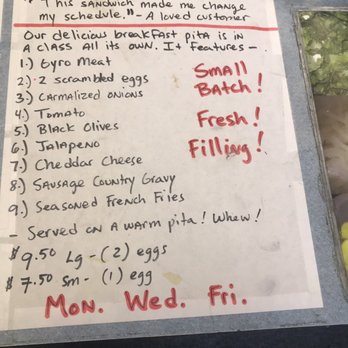 "This sandwich made me change
my schedule." - A loved customer
Our delicious breakfast pita is in
a class all its own. It features -
1.) Gyro Meat
2) 2 scrambled eggs
3.) Carmalized onions
4.) Tomato
5.) Black Olives
6.) Jalapeno
7.) Cheddar Cheese
8.) Sausage Country Gravy
9.) Seasoned French Fries
- Served on a warm pita! Whew!
$9.50 Lg - (2) eggs
$7.50 Sm - (1) egg
Small
Batch!
Fresh!
Filling!
Mon. Wed. Fri.